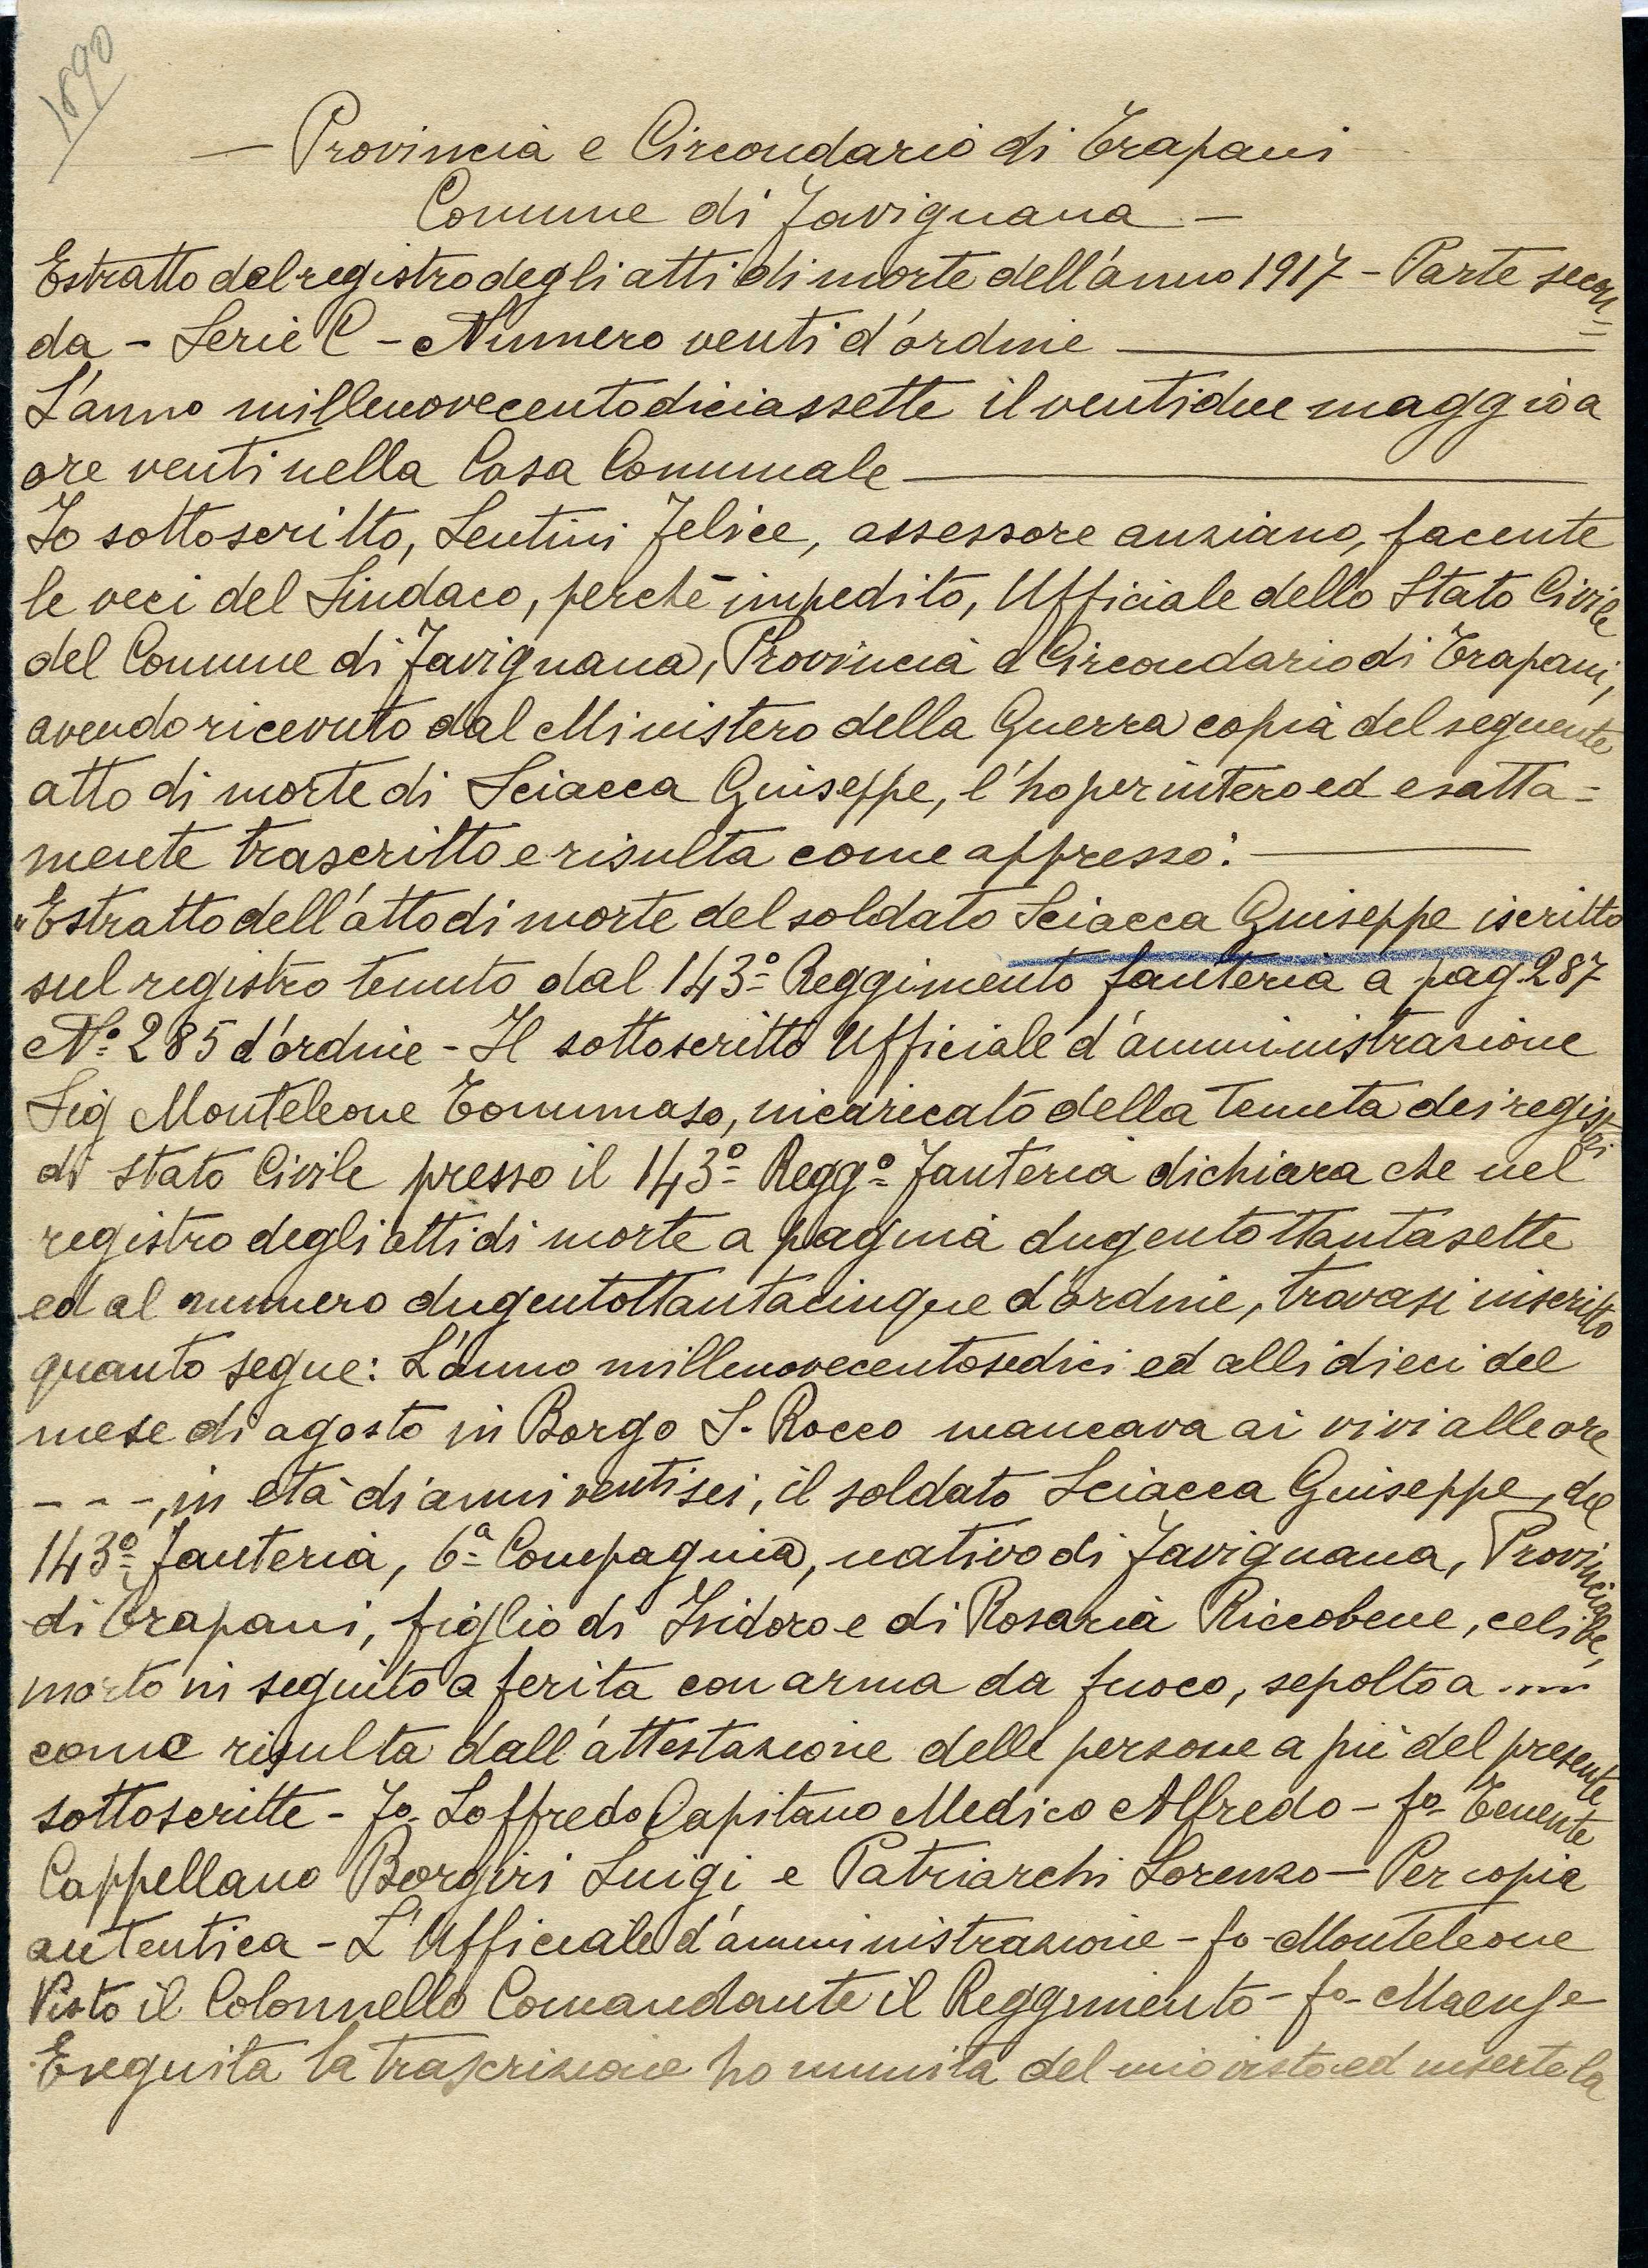 1890
— Provincia e Circondario di Trapani
Comune di Favignana —
Estratto del registro degli atti di morte dell'anno 1917 - Parte secon=
da - Serie C - Numero venti d'ordine —
L'anno millenovecentodiciassette il ventidue maggio a
ore venti nella Casa Comunale —
Io sottoscritto, Lentini Felice, assessore anziano, facente
le veci del Sindaco, perchè impedito, Ufficiale dello Stato Civile
del Comune di Favignana, Provincia e Circondario di Trapani,
avendo ricevuto dal Ministero della Guerra copia del seguente
atto di morte di Sciacca Giuseppe, l'ho per intero ed esatta=
mente trascritto e risulta come appresso: —
"Estratto dell'atto di morte del soldato Sciacca Giuseppe iscritto
sul registro tenuto dal 143º Reggimento fanteria a pag. 287
Nº 285 d'ordine - Il sottoscritto Ufficiale d'amministrazione
Sig Monteleone Tommaso, incaricato della tenuta dei registri
di stato Civile presso il 143º Reggº Fanteria dichiara che nel
registro degli atti di morte a pagina dugentottantasette
ed al numero dugentottantacinque d'ordine, trovasi inscritto
quanto segue: L'anno millenovecentosedici ed alli dieci del
mese di agosto in Borgo S. Rocco mancava ai vivi alle ore
- - -, in età di anni ventisei, il soldato Sciacca Giuseppe, del
143º Fanteria, 6ª Compagnia, nativo di Favignana, Provincia
di Trapani, figlio di Isidoro e di Rosaria Riccobene, celibe,
morto in seguito a ferita con arma da fuoco, sepolto a ....
come risulta dall'attestazione delle persone a piè del presente
sottoscritte - Fº Loffredo Capitano Medico Alfredo - fº Tenente
Cappellano Borgiri Luigi e Patriarchi Lorenzo - Per copia
autentica - L'Ufficiale d'amministrazione - fº Monteleone
Visto il Colonnello Comandante il Reggimento - fº
Eseguita la trascrizione ho munita del mio visto ed inserta la